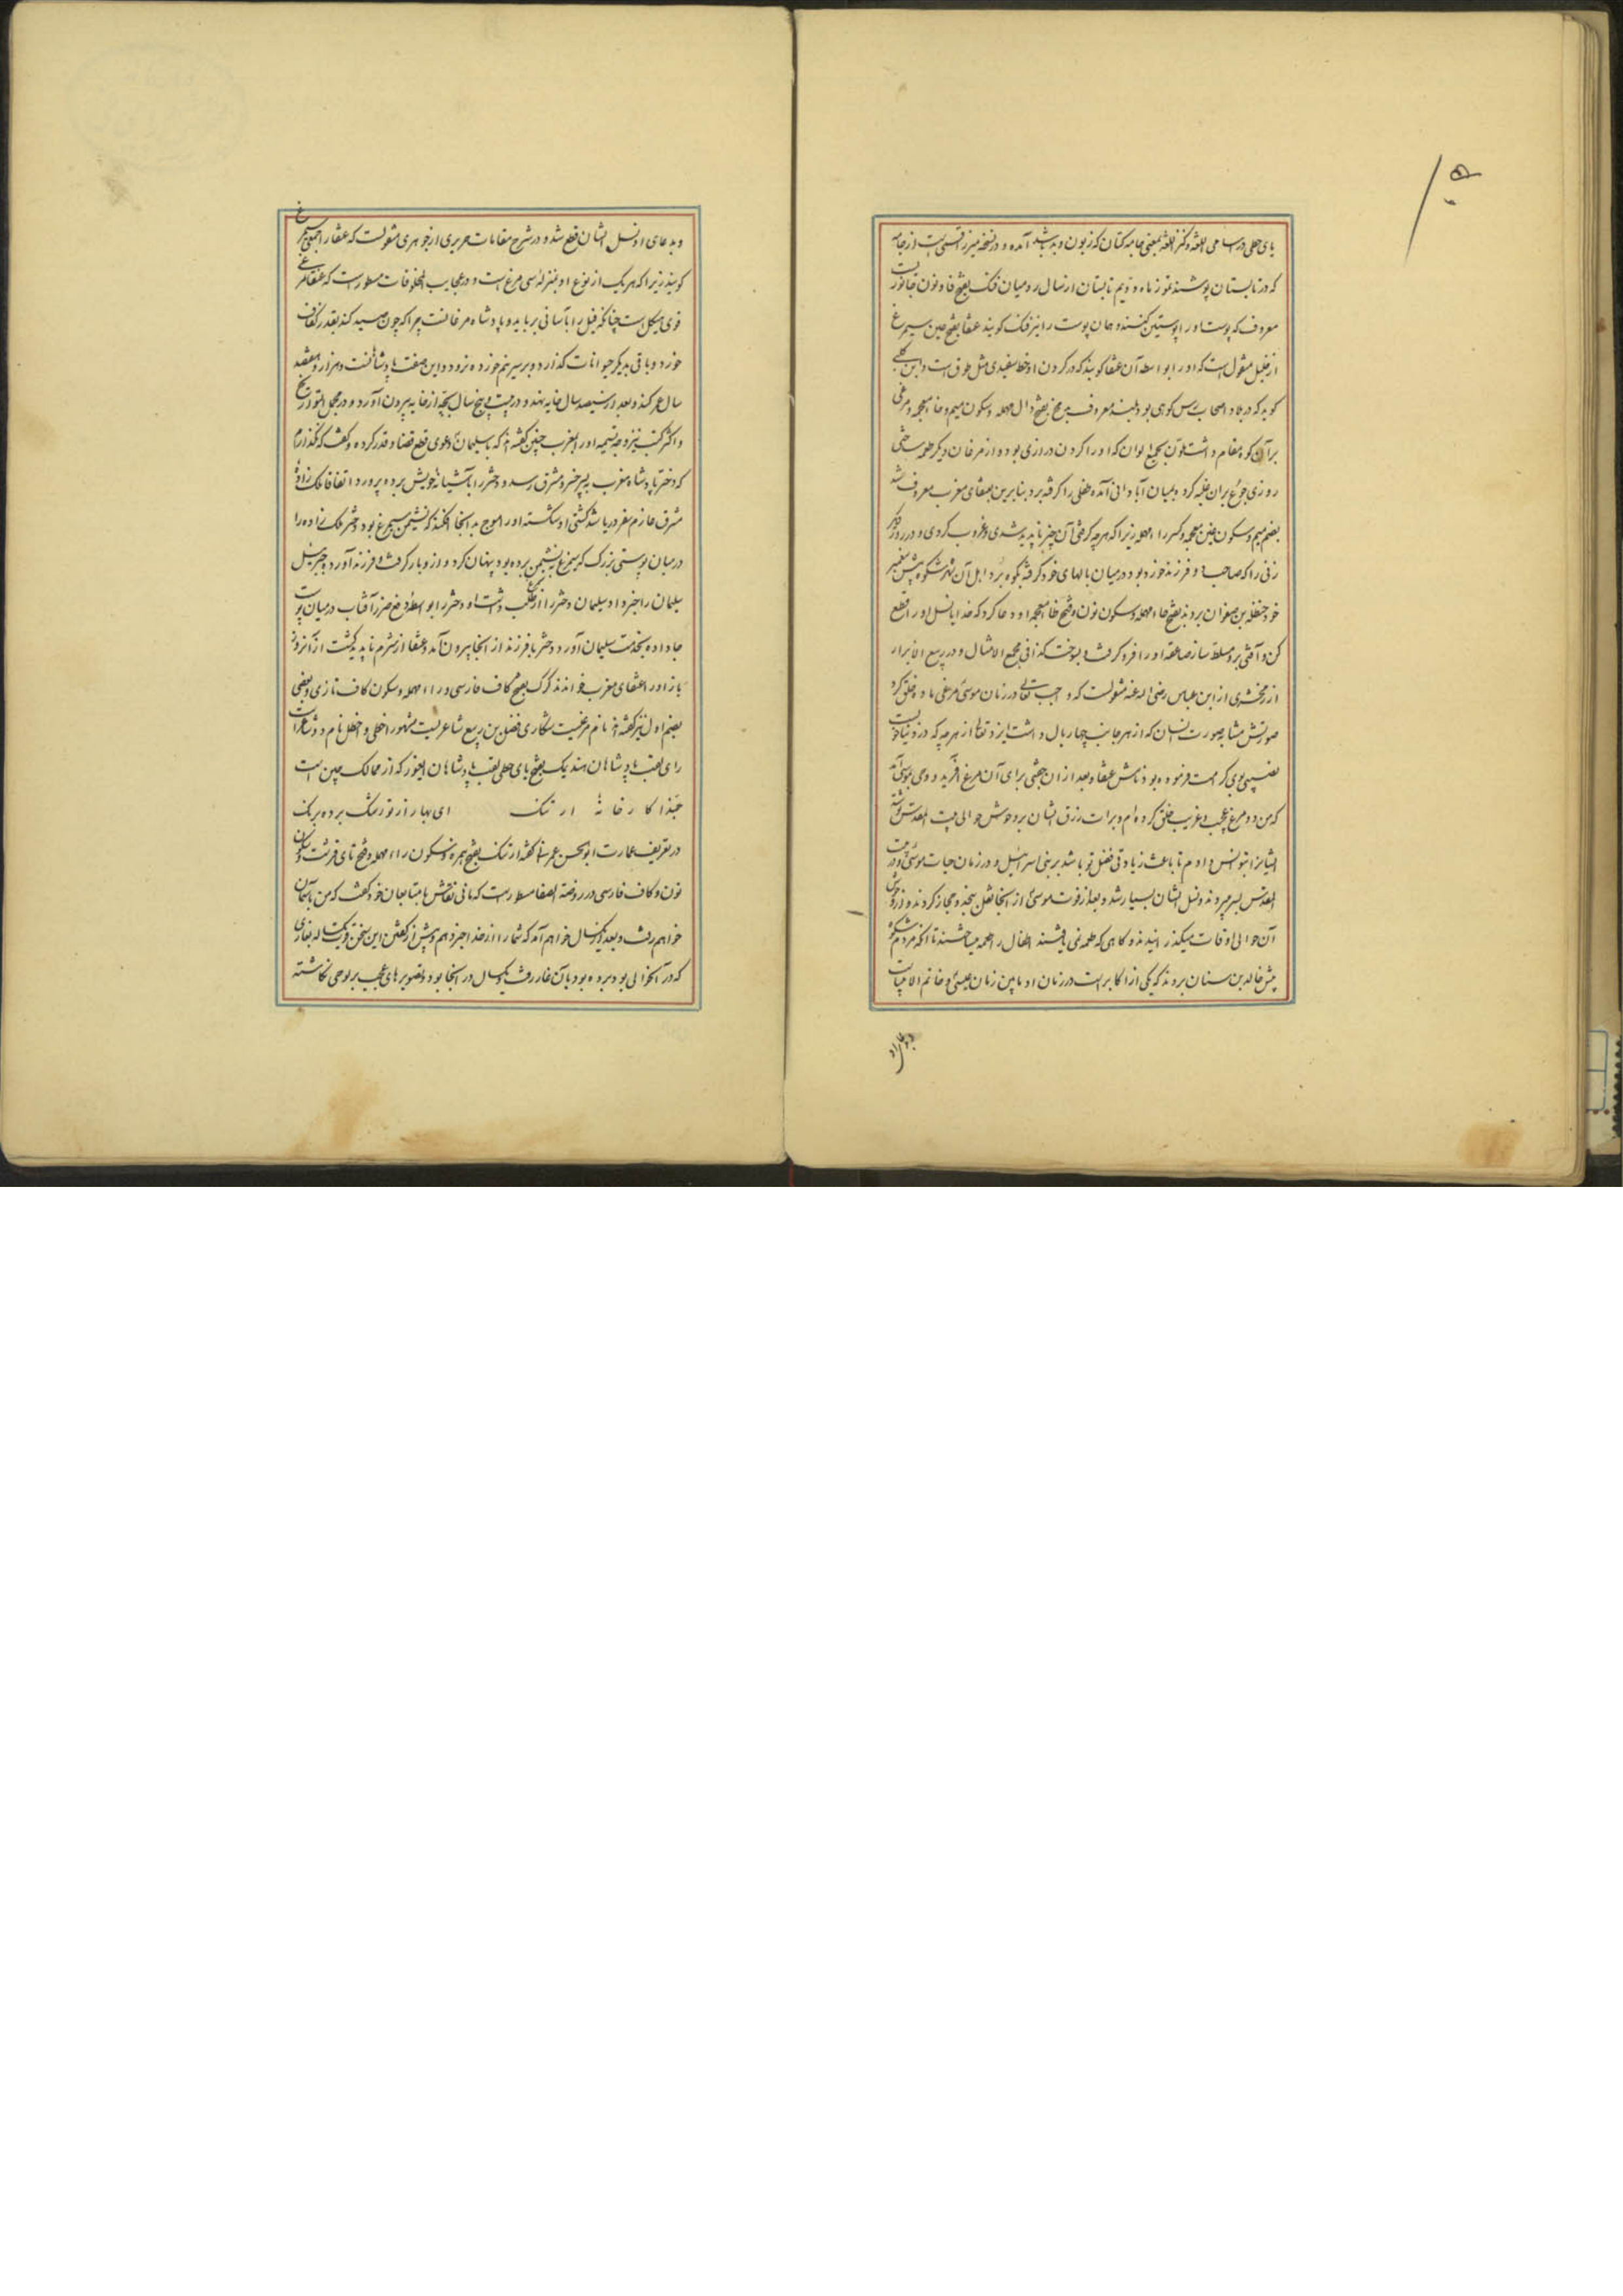 یای حطی در سامی اللغة و کنز اللغة بمعنی جامهٔ کتان که زبون و بد باشد آمده و در نسخهٔ میرزا قسمی است از جامه
که در تابستان پوشند تموز ماه دویم تابستان از سال رومیان فنک بفتح فا و نون جانوریست
معروف که پوست او را پوستین کنند و همان پوست را نیز فنک گویند عنقا بفتح عین سیمرغ
از خلیل منقول است که او را بواسطه آن عنقا گویند که در گردن او خط سفیدی مثل طوق است و ابن کلبی
گوید که در بلاد اصحاب رس کوهی بود بلند معروف بدمخ بفتح دال مهمله و سکون میم و خاء معجمه و مرغی
بر آن کوه مقام داشت ملون بجمیع الوان که او را گردن درازی بود و از مرغان دیگر طعمه ساختی
روزی جوع بر آن غلبه کرد و بمیان آبادانی آمده طفلی را گرفته برد بنابرین بعنقای مغرب معروف شد
بضم میم و سکون غین معجمه و کسر راء مهمله زیرا که هرچه گرفتی آن چیز ناپدید شدی و غروب کردی و در روز دیگر
زنی را که صاحب دو فرزند خورد بود در میان بالهای خود گرفته بکوه برد اهل آن شهر شکوه پیش پیغمبر
خود حنظله بن صفوان بردند بفتح حاء مهمله و سکون نون و فتح ظا معجمه او دعا کرد که خدایا نسل او را قطع
کن و آفتی برو مسلط ساز صاعقه او را فرو گرفت و بسوخت کذا فی مجمع الامثال و در ربیع الابرار
از زمخشری از ابن عباس رضی الله عنه منقولست که واجب تعالی در زمان موسی مرغی ماده خلق کرد
صورتش مشابه صورت انسان که از هر جانب چهار بال داشت ایزد تعالی از هر چه که در دنیاست
نصیبی بوی کرامت فرموده بود نامش عنقا و بعد از آن جفتی برای آن مرغ آفرید و وحی بموسی آمد
که من دو مرغ عجیب و غریب خلق کرده‌ام و برات رزق ایشان بر وحوش حوالی بیت المقدس نوشته
ایشانرا بتو انس دادم تا باعث زیادتی فضل تو باشد بر بنی اسرائیل و در زمان حیات موسی در بیت
المقدس بسر میبردند و نسل ایشان بسیار شد و بعد از فوت موسی از آنجا نقل بنجد و حجاز کردند و از وحوش
آن حوالی اوقات میگذرانیدند و گاهی که طعمه نمی یافتند اطفال را طعمه میساختند تا آنکه مردم شکوه
پیش خالد بن سنان بردند که یکی از اکابر است در زمان او مابین زمان عیسی و خاتم الانبیاست
و بدعای او
و بدعای او نسل ایشان قطع شد و در شرح مقامات حریری از جوهری منقولست که عنقا را جمعی سیمرغ
گویند زیرا که هر یک از نوع او بمنزله سی مرغ است و در عجایب المخلوقات مسطور است که عنقا مرغی
قوی هیکل است چنانکه فیل را بآسانی برباید و پادشاه مرغانست چرا که چون صید کند بقدر کفاف
خورد و باقی بدیگر حیوانات گذارد و بر سر نیم خورده نرود و این صفت پادشاهانست و هزار و هفتصد
سال عمر کند و بعد از سیصد سال خایه نهد و در بیست و پنج سال بچه از خایه بیرون آورد و در مجمل التواریخ
و اکثر کتب نیز وجه تسمیه او را بمغرب چنین گفته‌اند که با سلیمان دعوی قطع قضا و قدر کرده و گفت که نگذارم
که دختر پادشاه مغرب به پسر خسرو مشرق رسد و دختر را بآشیانهٔ خویش برده پرورد اتفاقا ملک زاده
مشرق عازم سفر دریا شد کشتی او شکسته او را موج به آنجا افکند که نشیمن سیمرغ بود دختر ملک زاده را
در میان پوستی بزرگ که سیمرغ به نشیمن برده بود پنهان کرد و ازو بار گرفت و فرزند آورد و جبرئیل
سلیمان را خبر داد سلیمان دختر را از عنقا طلب داشت او دختر را بواسطه دفع ضرر آفتاب در میان پوست
جا داده بخدمت سلیمان آورد و دختر با فرزند از آنجا بیرون آمد و عنقا از شرم ناپدید گشت از آنروز
باز او را عنقای مغرب خوانند کرک بفتح کاف فارسی و راء مهمله و سکون کاف تازی و بعضی
بضم اول نیز گفته‌اند نام مرغیست شکاری فضل بن ربیع شاعریست مشهور اخطی و اخطل نام دو شاعر است
رای لقب پادشاهان هند یبک بفتح یای حطی لقب پادشاهان ایغور که از ممالک چین است
حبذا کارخانهٔ ارتنگ ای بهار از تو رشک برده برنگ
در تعریف عمارت ابوالحسن عمرانی گفته ارتنگ بفتح همزه و سکون راء مهمله و فتح تای قرشت و سکون
نون و کاف فارسی در روضة الصفا مسطور است که مانی نقاش با متابعان خود گفت که من بآسمان
خواهم رفت و بعد از یکسال خواهم آمد که شما را از خدا خبر دهم و پیش از گفتن این سخن قوت یکساله بغاری
که در آن حوالی بود برده بود بآن غار رفت و یکسال در آنجا بود و تصویرهای عجیب بر لوحی نگاشته